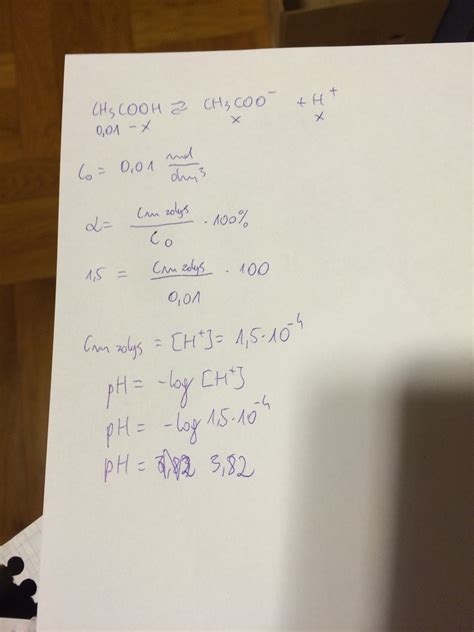 CH₃COOH ⇄ CH₃COO⁻ + H⁺
0,01 - x x x
C₀ = 0,01 mol/dm³
α = Cm zdys/C₀ · 100%
1,5 = Cm zdys/0,01 · 100
Cm zdys = [H⁺] = 1,5·10⁻⁴
pH = -log [H⁺]
pH = -log 1,5·10⁻⁴
pH = 3,82